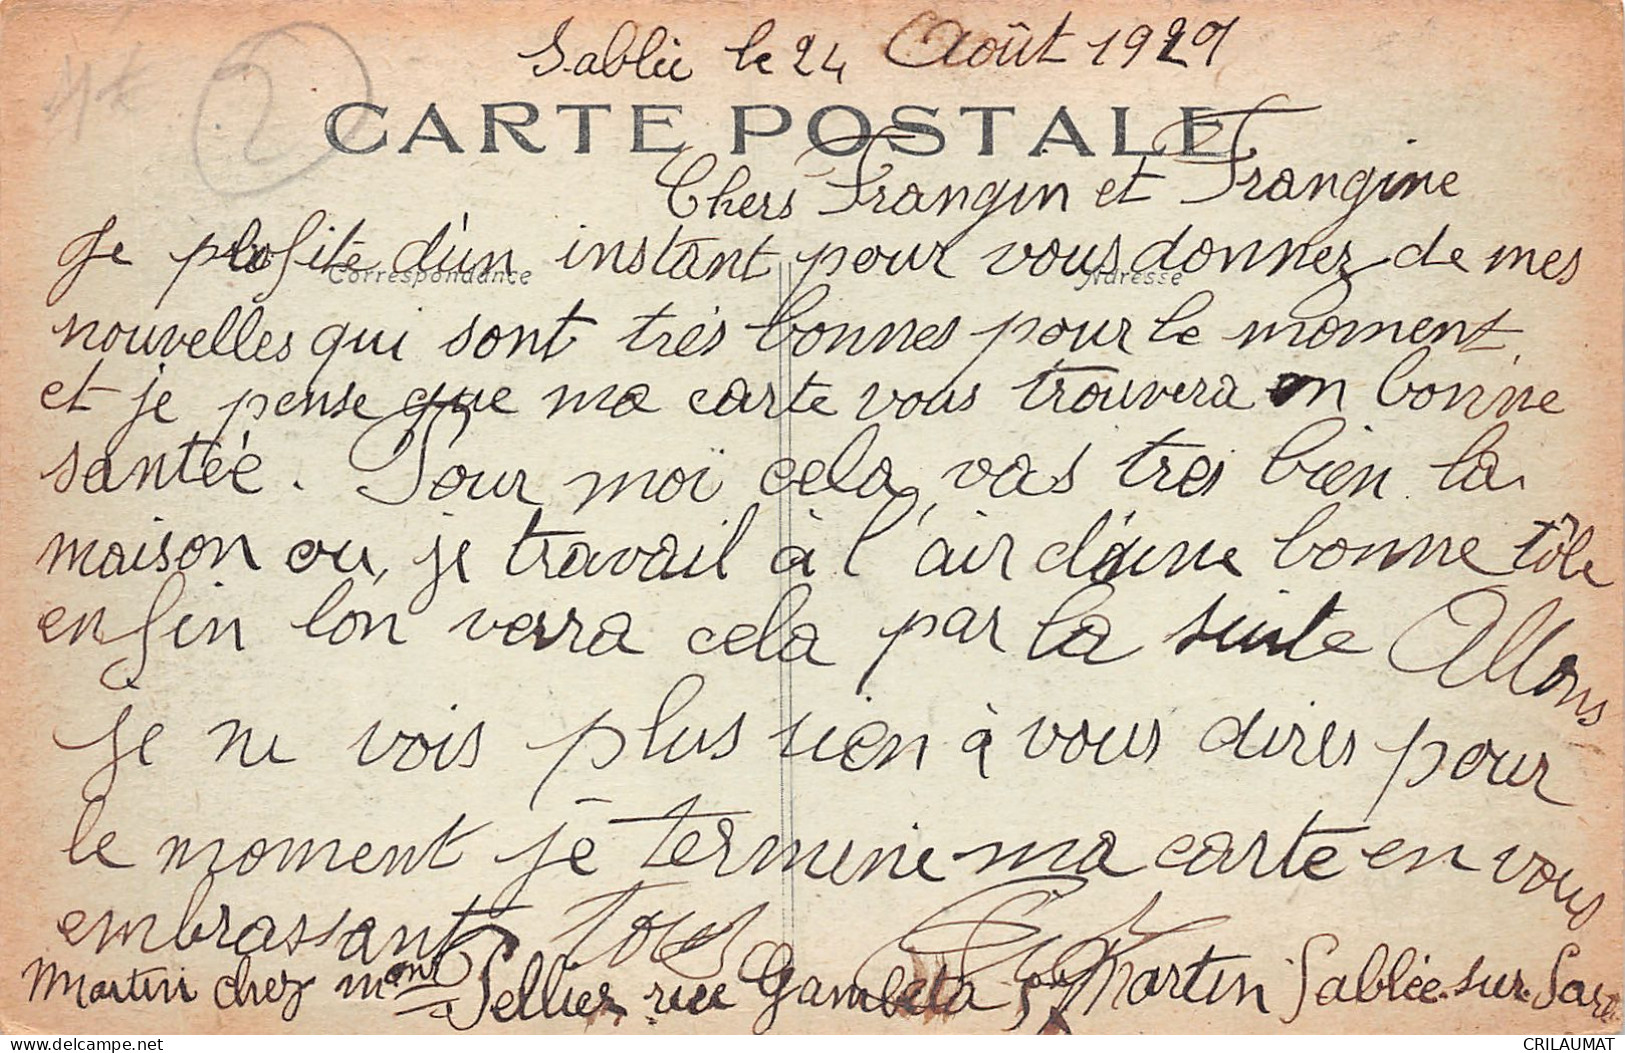 Sablée le 24 Août 1929
2
CARTE POSTALE
Chers Frangin et Frangine
Je profite d'un instant pour vous donner de mes
Correspondance
Adresse
nouvelles qui sont très bonnes pour le moment
et je pense que ma carte vous trouvera en bonne
santée. Pour moï cela vas tres bien la
maison ou je travail à l'air d'une bonne tôle
enfin lon verra cela par la suite Allons
je ne vois plus rien à vous dires pour
le moment je termine ma carte en vous
embrassant Tous
Martin chez mons Sellier rue Gambeta Martin Sablée-sur-Sar
CRILAUMAT